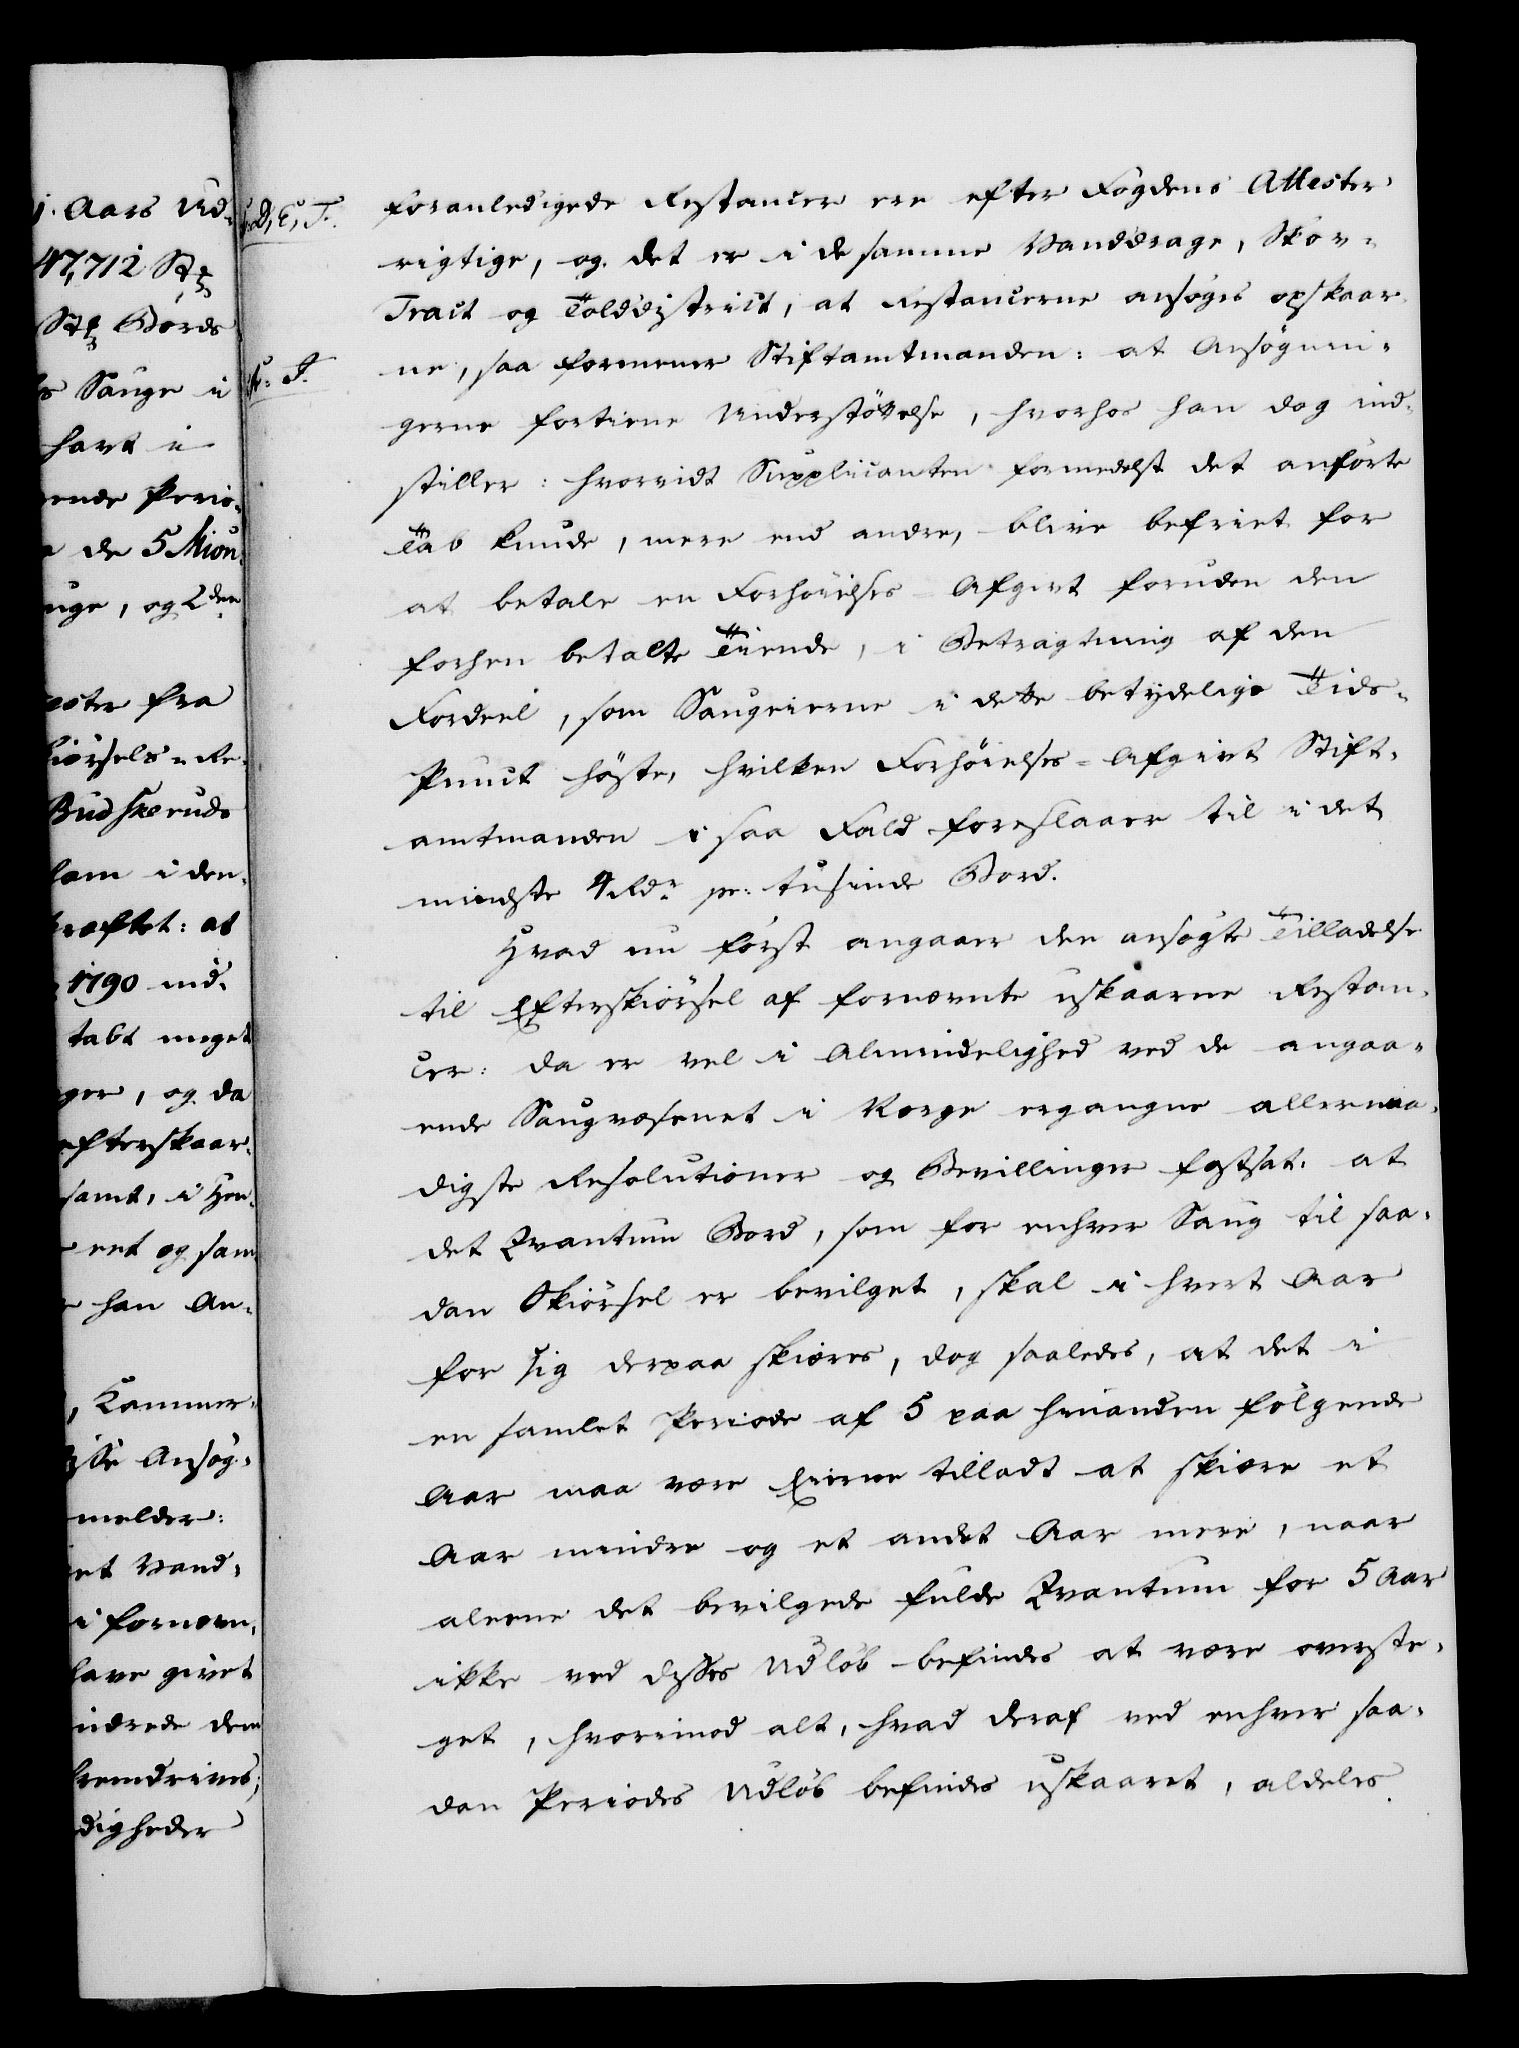 j. Aars Ud-
47,712 St
St Bords
s Sauge i
havt i
ende Perio-
de 5 Mion
uge, og 2den
ester fra
iörsels-Re-
Budskeruds
lam i den-
ræftet: at
1790 ind-
tabt meget
ger, og da
efterskaar-
samt, i Hen-
eet og sam
han An-
, Kammer-
isse Ansög-
melder:
et Vand-
i fornævn-
have givet
indrede dem
fremdrives,
digheder
D, E, F.
foranledigede Restancer ere efter Fogdens Attester
rigtige, og det er i de samme Vanddrage, Skov-
Tract og Tolddistrict, at Restancerne ansöges opskaar-
F.
ne, saa formener Stiftamtmanden: at Ansögnin-
gerne fortiene Understöttelse, hvorhos han dog ind-
stiller: hvorvidt Supplicanten formedelst det anförte
Tab kunde, mere end andre, blive befriet for
at betale en Forhöielses-Afgivt foruden den
forhen betalte Tiende, i Betragtning af den
Fordeel, som Saugeierne i dette betydelige Tids-
Punct höste, hvilken Forhöielses-Afgivt Stift-
amtmanden i saa Fald foreslaaer til i det
mindste 4 Rdr pr: tusinde Bord.
Hvad nu först angaaer den ansögte Tilladelse
til Efterskiörsel af fornævnte uskaarne Restan-
cer: da er vel i Almindelighed ved de angaa-
ende Saugvæsenet i Norge ergangne allernaa-
digste Resolutioner og Bevillinger fastsat: at
det Qvantum Bord, som for enhver Saug til saa-
dan Skiörsel er bevilget, skal i hvert Aar
for sig derpaa skiæres, dog saaledes, at det i
en samlet Periode af 5 paa hinanden fölgende
Aar maa være Eierne tilladt at skiære et
Aar mindre og et andet Aar mere, naar
aleene det bevilgede fulde Qvantum for 5 Aar
ikke ved disses Udlöb befindes at være overste-
get, hvorimod alt, hvad deraf ved enhver saa-
dan Periodes Udlöb befindes uskaaret, aldeles